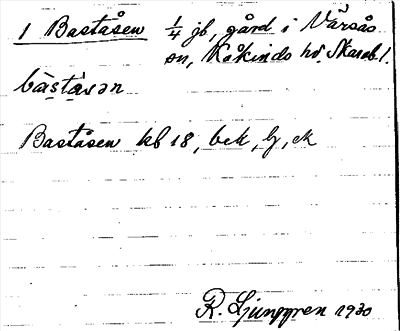 1 Baståsen 1/4 jb, gård i Värsås
sn, Kåkinds hd. Skarab. l.
bàstàsən
Baståsen kb 18, bek, lj, ek
R. Ljunggren 1930